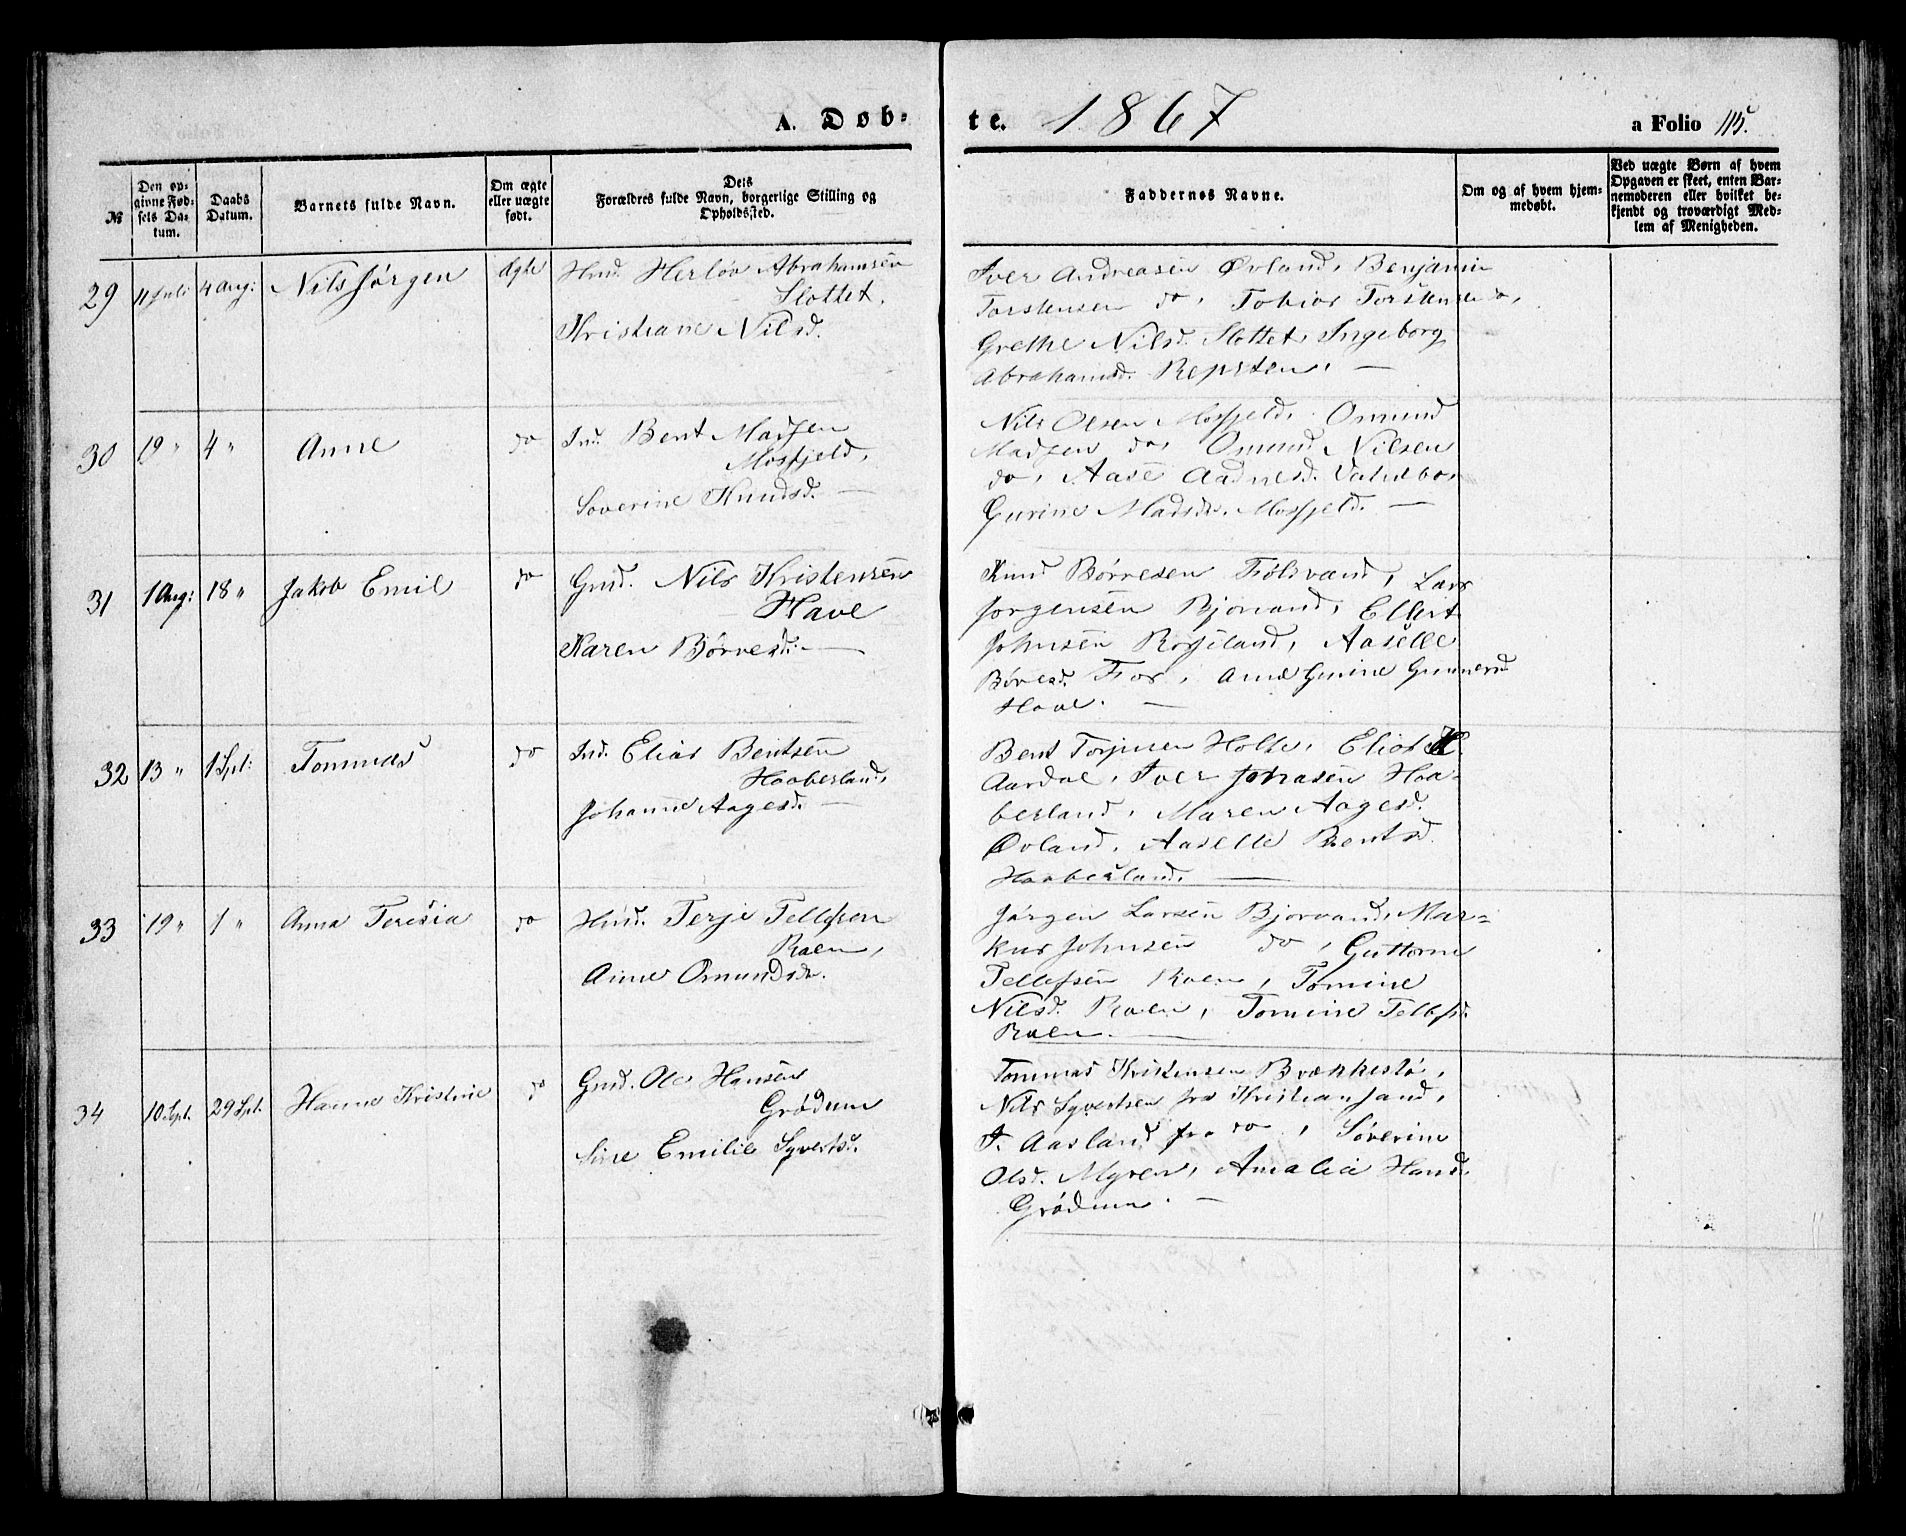 A. Døb-
te. 1867
a Folio 115.
№
Den op-
givne Fød-
sels Da-
tum.
Daabs
Datum.
Barnets fulde Navn.
Om ægte
eller uægte
født.
Dets
Forældres fulde Navn, borgerlige Stilling og
Opholdssted.
Faddernes Navne.
Om og af hvem hjem-
medøbt.
Ved uægte Børn af hvem
Opgaven er skeet, enten Bar-
nemoderen eller hvilket be-
kjendt og troværdigt Med-
lem af Menigheden.
29 11 Juli 4 Aug: Nils Jörgen ægte
Hmd. Herlöv Abrahamsen
Slottet,
Kristiane Nilsd.
Iver Andreasen Øvland, Benjamin
Torstensen do, Tobias Torstensen do,
Grethe Nilsd. Slottet, Ingeborg
Abrahamsd. Repsten, —
30 19 " 4 " Anne do
Ind. Bent Madsen
Mosfjeld,
Severine Knudsd. —
Nils Olsen Mosfjeld, Omund
Madsen do, Omund Nilsen
do, Aase Aadnesd.
Gurine Madsdr. Mosfjeld. —
31 1 Aug: 18 " Jakob Emil do
Gmd. Nils Kristensen
Have
Karen Börresd: —
Knud Börresen Fidsvand, Lars
Jörgensen Bjorvand, Ellert
Johnsen Rosseland, Aaselle
Börresd. Fror, Anne Gurine Gunnersd.
Have. —
32 13 " 1 Spt: Tommas do
Ind. Elias Bentsen
Haaberland,
Johanne Aagesd. —
Bent Torjusen Holte, Elias
Aardal, Iver Johnsen Haa-
berland, Maren Aagesd.
Øvland, Aaselle Bentsd.
Haaberland. —
33 19 " 1 " Anna Teresia do
Hmd. Terje Tellefsen
Roen,
Anne Omundsdr.
Jörgen Larsen Bjorvand, Mar-
kus Johnsen do, Guttorm
Tellefsen Roen, Tomine
Nilsd. Roen, Tomine Tellefsd.
Roen. —
34 10 Spt. 29 Spt. Hanne Kristine do
Gmd. Ole Hansen
Grödum
Sine Emilie Syvertsd.
Tommas Kristensen Brækkestö,
Nils Syvertsen fra Kristiansand,
T. Aasland fra do, Söverine
Olsd. Myren, Amalia Hansd.
Grödum. —